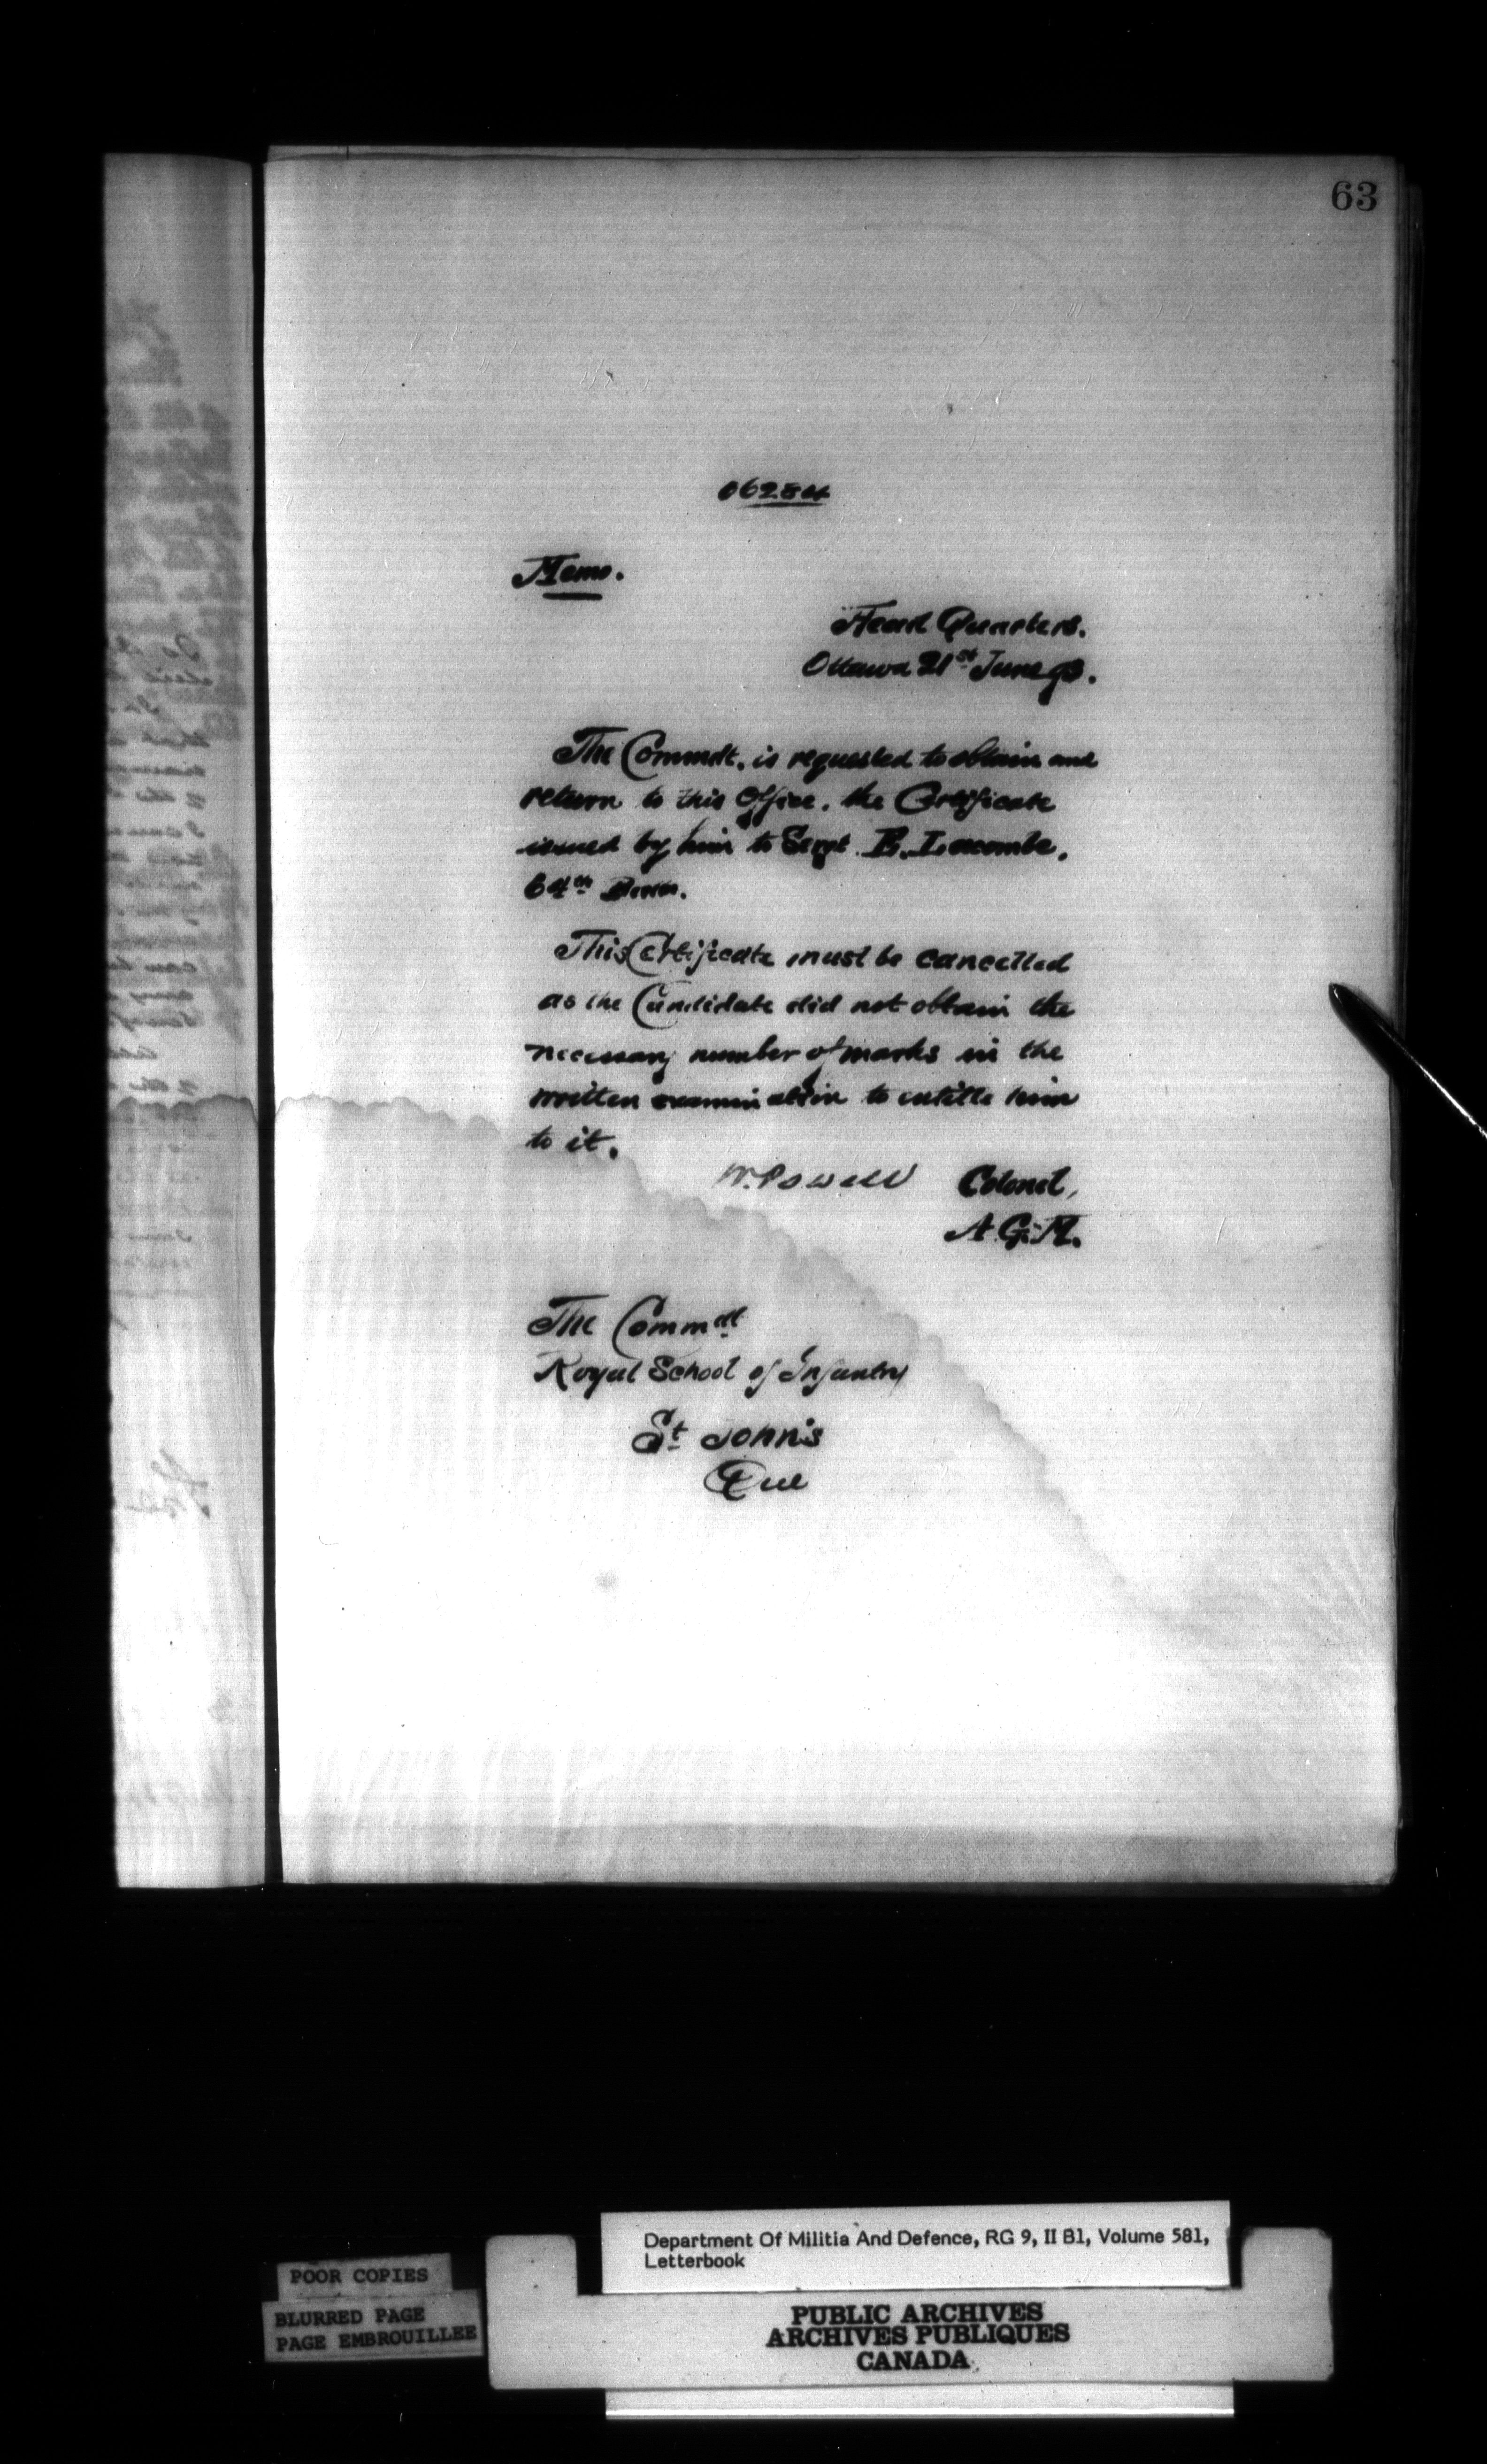 63
06284
Memo.
Head Quarters.
Ottawa 21st June 93.
The Commdt. is requested to obtain and
return to this Office, the Certificate
issued by him to Sergt. E. Lacombe,
64th Battn.
This Certificate must be cancelled
as the Candidate did not obtain the
necessary number of marks in the
written examination to entitle him
to it.
W. Powell Colonel,
A.G.M.
The Commdt
Royal School of Infantry
St John's
Que
Department Of Militia And Defence, RG 9, II B1, Volume 581,
Letterbook
POOR COPIES
BLURRED PAGE
PAGE EMBROUILLEE
PUBLIC ARCHIVES
ARCHIVES PUBLIQUES
CANADA